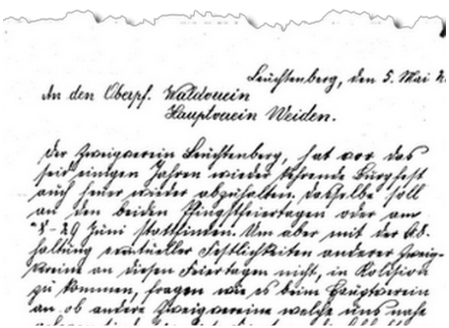 Leuchtenberg, den 5. Mai
An den Oberpf. Waldverein
Hauptverein Weiden.
Der Zweigverein Leuchtenberg, hat vor das
seid einigen Jahren wieder kehrende Burgfest
auch heuer wieder abzuhalten. dasselbe soll
an den beiden Pfingstfeiertagen oder am
28-29 Juni stattfinden. Um aber mit der Ab-
haltung eventueller Festlichkeiten anderer Zweig-
vereine an diesen Feiertagen nicht, in Kolision
zu kommen, fragen wir es beim Hauptverein
an ob andere Zweigvereine welche uns nahe